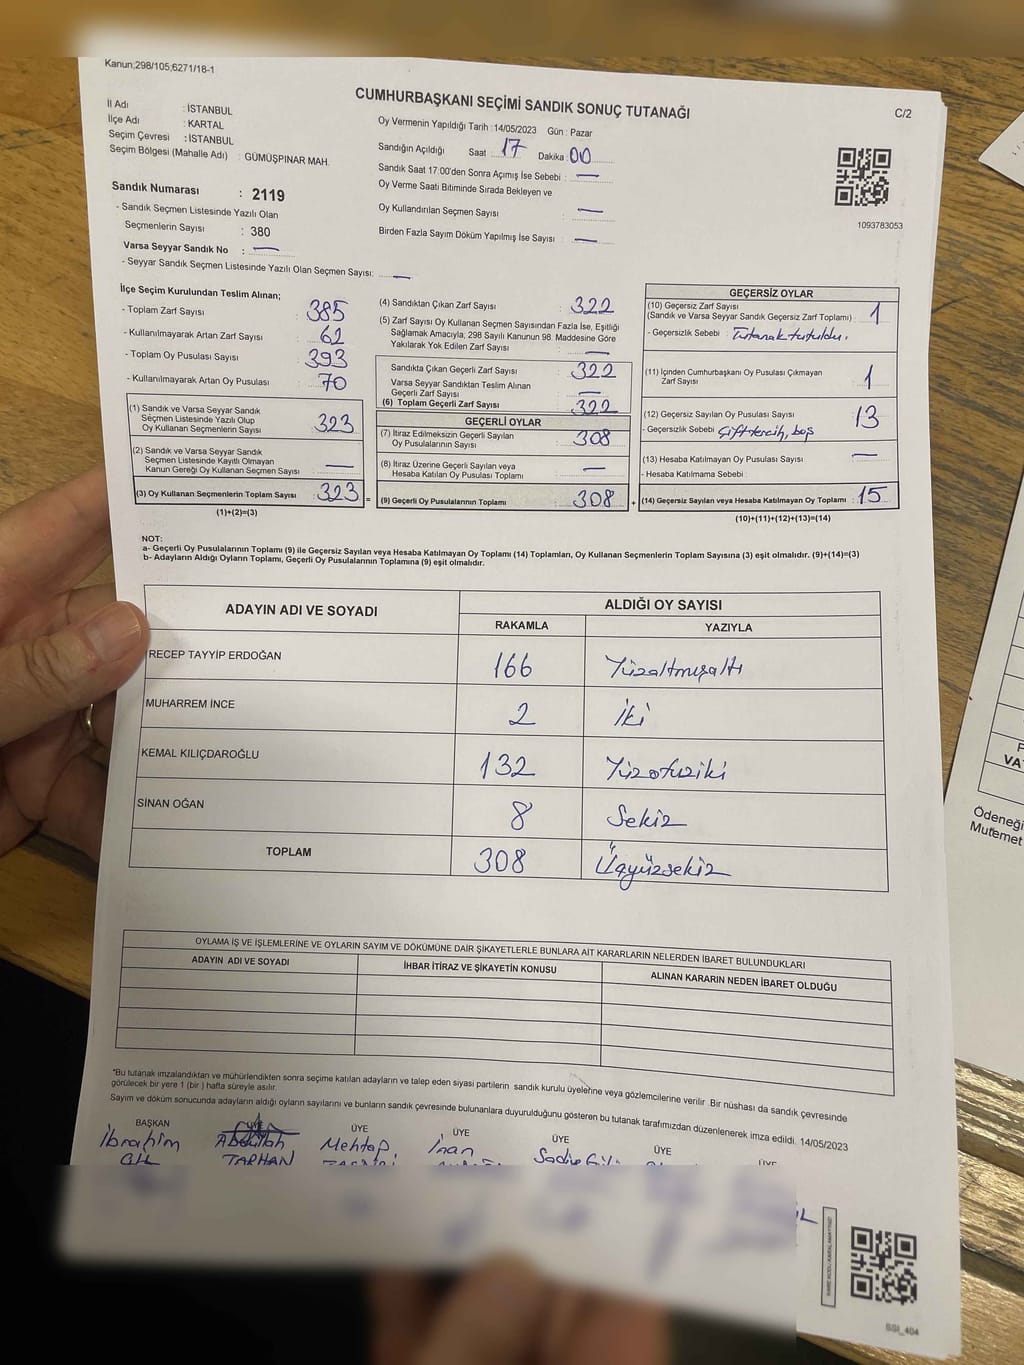 Kanun;298/105;6271/18-1
CUMHURBAŞKANI SEÇİMİ SANDIK SONUÇ TUTANAĞI
C/2
İl Adı : İSTANBUL
İlçe Adı : KARTAL
Seçim Çevresi : İSTANBUL
Seçim Bölgesi (Mahalle Adı) : GÜMÜŞPINAR MAH.
Oy Vermenin Yapıldığı Tarih : 14/05/2023 Gün : Pazar
Sandığın Açıldığı Saat : 17 Dakika : 00
Sandık Saat 17:00'den Sonra Açımış İse Sebebi : —
Oy Verme Saati Bitiminde Sırada Bekleyen ve
Oy Kullandırılan Seçmen Sayısı : —
Birden Fazla Sayım Döküm Yapılmış İse Sayısı : —
1093783053
Sandık Numarası : 2119
- Sandık Seçmen Listesinde Yazılı Olan
Seçmenlerin Sayısı : 380
Varsa Seyyar Sandık No : —
- Seyyar Sandık Seçmen Listesinde Yazılı Olan Seçmen Sayısı: —
İlçe Seçim Kurulundan Teslim Alınan;
- Toplam Zarf Sayısı : 385
- Kullanılmayarak Artan Zarf Sayısı : 62
- Toplam Oy Pusulası Sayısı : 393
- Kullanılmayarak Artan Oy Pusulası : 70
(1) Sandık ve Varsa Seyyar Sandık
Seçmen Listesinde Yazılı Olup
Oy Kullanan Seçmenlerin Sayısı : 323
(2) Sandık ve Varsa Seyyar Sandık
Seçmen Listesinde Kayıtlı Olmayan
Kanun Gereği Oy Kullanan Seçmen Sayısı : —
(3) Oy Kullanan Seçmenlerin Toplam Sayısı : 323 =
(1)+(2)=(3)
(4) Sandıktan Çıkan Zarf Sayısı : 322
(5) Zarf Sayısı Oy Kullanan Seçmen Sayısından Fazla İse, Eşitliği
Sağlamak Amacıyla, 298 Sayılı Kanunun 98. Maddesine Göre
Yakılarak Yok Edilen Zarf Sayısı : —
Sandıkta Çıkan Geçerli Zarf Sayısı : 322
Varsa Seyyar Sandıktan Teslim Alınan
Geçerli Zarf Sayısı : —
(6) Toplam Geçerli Zarf Sayısı : 322
GEÇERLİ OYLAR
(7) İtiraz Edilmeksizin Geçerli Sayılan
Oy Pusulalarının Sayısı : 308
(8) İtiraz Üzerine Geçerli Sayılan veya
Hesaba Katılan Oy Pusulası Toplamı : —
(9) Geçerli Oy Pusulalarının Toplamı : 308 +
GEÇERSİZ OYLAR
(10) Geçersiz Zarf Sayısı
(Sandık ve Varsa Seyyar Sandık Geçersiz Zarf Toplamı) : 1
- Geçersizlik Sebebi : Tutanak tutuldu.
(11) İçinden Cumhurbaşkanı Oy Pusulası Çıkmayan
Zarf Sayısı : 1
(12) Geçersiz Sayılan Oy Pusulası Sayısı : 13
- Geçersizlik Sebebi : Çift tercih, boş
(13) Hesaba Katılmayan Oy Pusulası Sayısı : —
- Hesaba Katılmama Sebebi :
(14) Geçersiz Sayılan veya Hesaba Katılmayan Oy Toplamı : 15
(10)+(11)+(12)+(13)=(14)
NOT:
a- Geçerli Oy Pusulalarının Toplamı (9) ile Geçersiz Sayılan veya Hesaba Katılmayan Oy Toplamı (14) Toplamları, Oy Kullanan Seçmenlerin Toplam Sayısına (3) eşit olmalıdır. (9)+(14)=(3)
b- Adayların Aldığı Oyların Toplamı, Geçerli Oy Pusulalarının Toplamına (9) eşit olmalıdır.
ADAYIN ADI VE SOYADI ALDIĞI OY SAYISI
RAKAMLA YAZIYLA
RECEP TAYYİP ERDOĞAN 166 Yüzaltmışaltı
MUHARREM İNCE 2 İki
KEMAL KILIÇDAROĞLU 132 Yüzotuziki
SİNAN OĞAN 8 Sekiz
TOPLAM 308 Üçyüzsekiz
OYLAMA İŞ VE İŞLEMLERİNE VE OYLARIN SAYIM VE DÖKÜMÜNE DAİR ŞİKAYETLERLE BUNLARA AİT KARARLARIN NELERDEN İBARET BULUNDUKLARI
ADAYIN ADI VE SOYADI İHBAR İTİRAZ VE ŞİKAYETİN KONUSU ALINAN KARARIN NEDEN İBARET OLDUĞU
*Bu tutanak imzalandıktan ve mühürlendikten sonra seçime katılan adayların ve talep eden siyasi partilerin sandık kurulu üyelerine veya gözlemcilerine verilir. Bir nüshası da sandık çevresinde
görülecek bir yere 1 (bir ) hafta süreyle asılır.
Sayım ve döküm sonucunda adayların aldığı oyların sayılarını ve bunların sandık çevresinde bulunanlara duyurulduğunu gösteren bu tutanak tarafımızdan düzenlenerek imza edildi. 14/05/2023
BAŞKAN ÜYE ÜYE ÜYE ÜYE ÜYE
İbrahim Abdullah Mehtap İnan
TARHAN
SSI_404
Ödeneği
Mutemet
VA